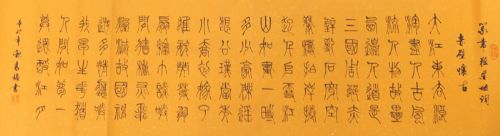 篆書蘇東坡詞
赤壁懷古
大江東去浪
淘盡千古風
流人物故壘
西邊人道是
三國周郎赤
壁亂石穿空
驚濤拍岸捲
起千堆雪江
山如畫一時
多少豪傑遙
想公瑾當年
小喬初嫁了
雄姿英發羽
扇綸巾談笑
間檣櫓灰飛
煙滅故國神
遊多情應笑
我早生華髮
人間如夢一
尊還酹江月
辛卯年書